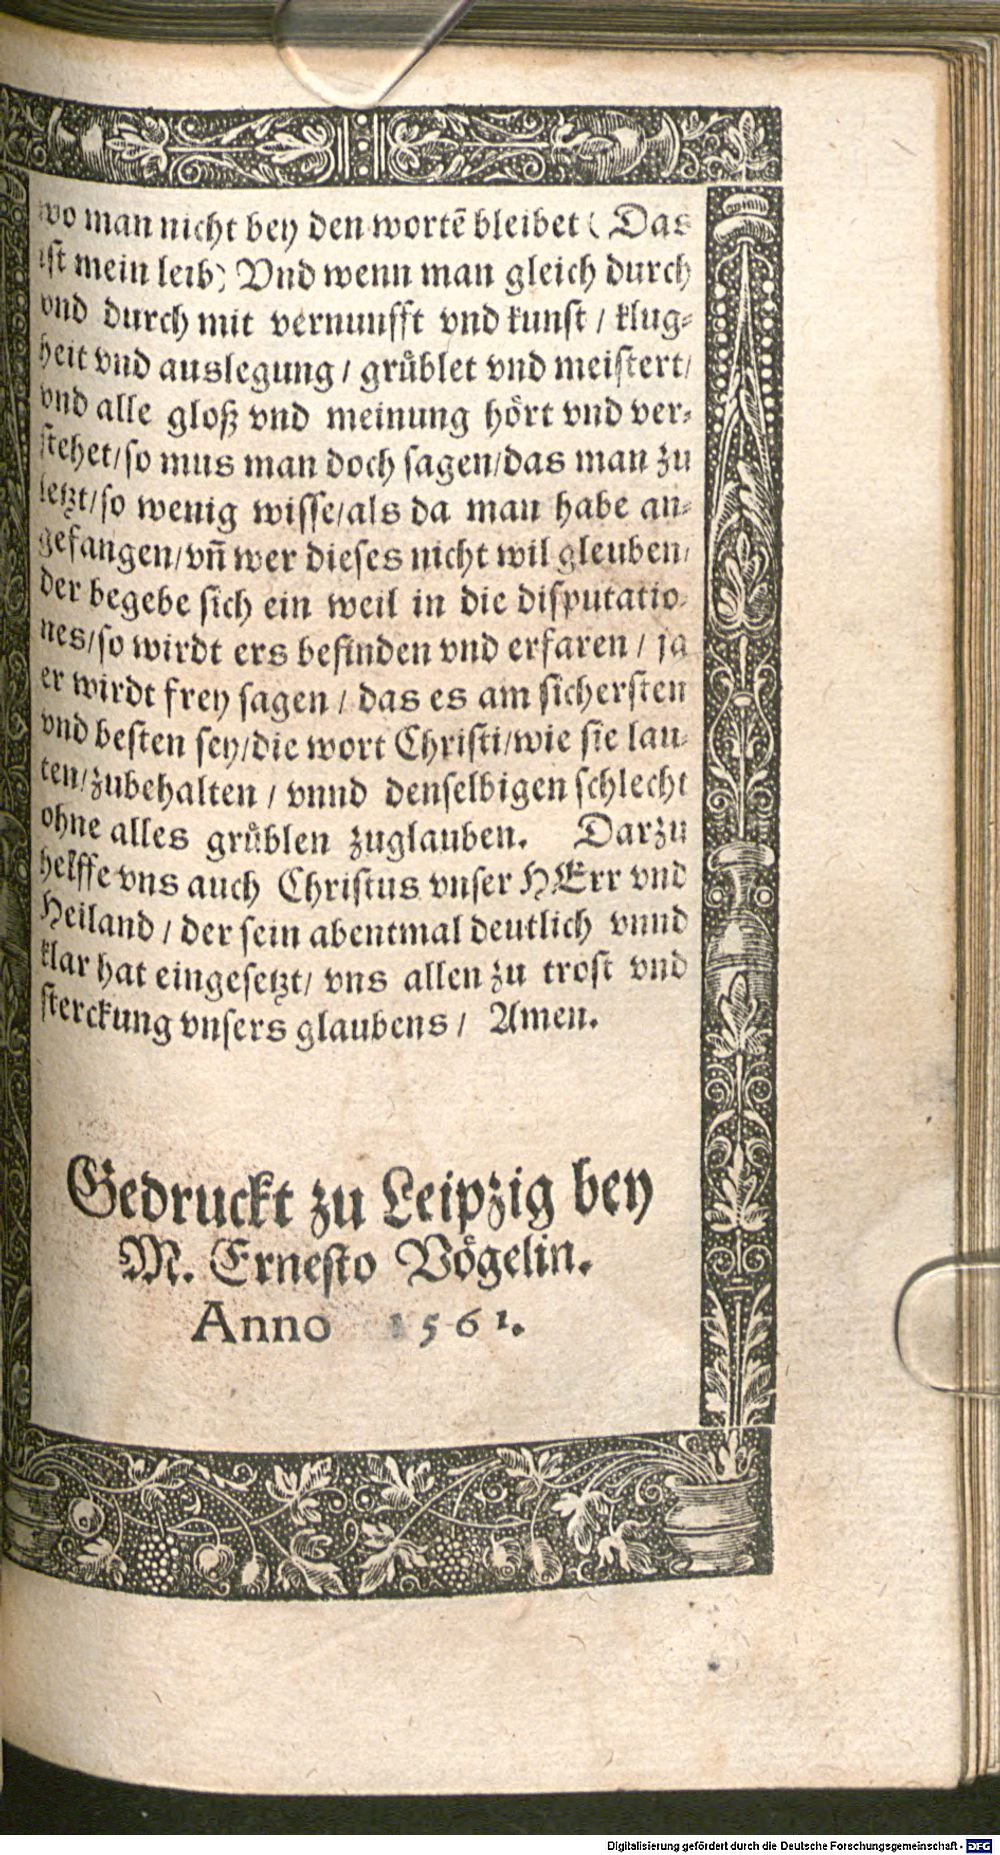 wo man nicht bey den wortē bleibet (Das
ist mein leib) Vnd wenn man gleich durch
vnd durch mit vernunfft vnd kunst / klug-
heit vnd auslegung / grüblet vnd meistert/
vnd alle gloß vnd meinung hört vnd ver-
stehet/so mus man doch sagen/das man zu
letzt/so wenig wisse/als da man habe an-
gefangen/vn̄ wer dieses nicht wil gleuben/
der begebe sich ein weil in die disputatio-
nes/so wirdt ers befinden vnd erfaren / ja
er wirdt frey sagen / das es am sichersten
vnd besten sey/die wort Christi/wie sie lau-
ten/zubehalten / vnnd denselbigen schlecht
ohne alles grüblen zuglauben. Darzu
helffe vns auch Christus vnser HErr vnd
Heiland / der sein abentmal deutlich vnnd
klar hat eingesetzt/ vns allen zu trost vnd
sterckung vnsers glaubens / Amen.
Gedruckt zu Leipzig bey
M. Ernesto Vögelin.
Anno 1561.
Digitalisierung gefördert durch die Deutsche Forschungsgemeinschaft - DFG